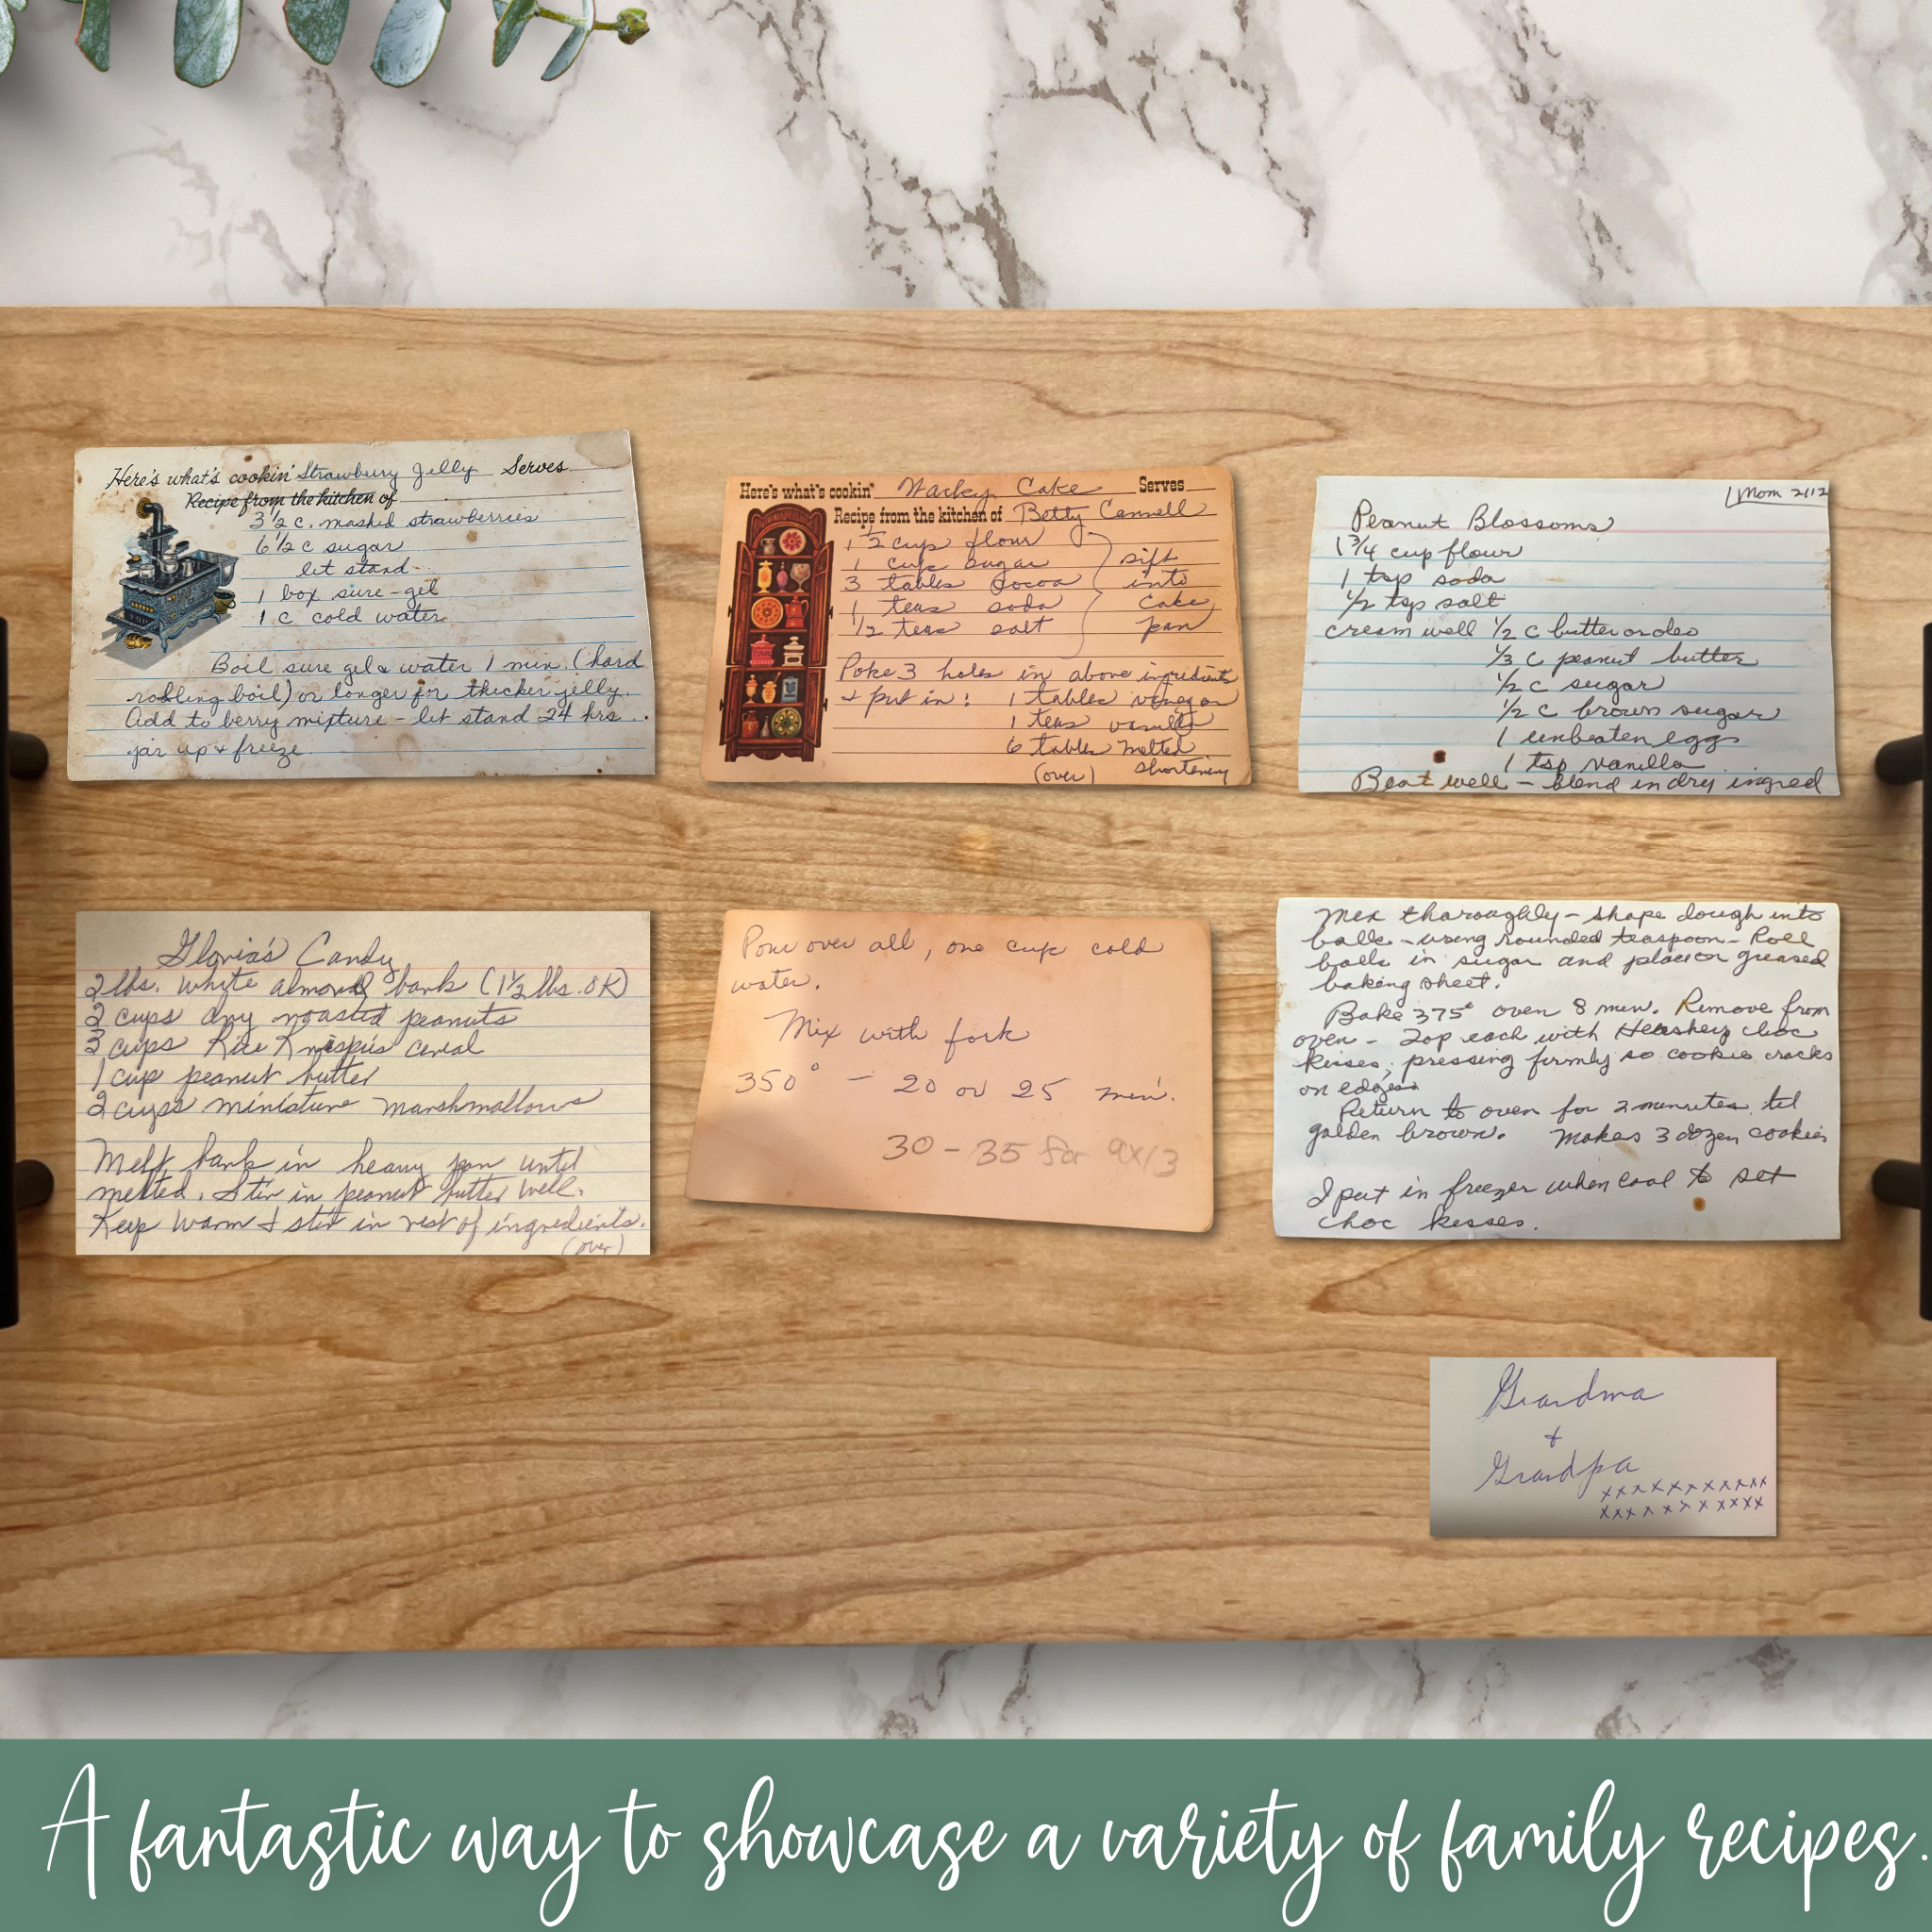 Here's what's cookin' Strawberry Jelly Serves
Recipe from the kitchen of
3 1/2 c. mashed strawberries
6 1/2 c sugar
let stand
1 box sure-gel
1 c cold water
Boil sure gel & water 1 min. (hard
rolling boil) or longer for thicker jelly.
Add to berry mixture - let stand 24 hrs.
jar up & freeze
Here's what's cookin' Wacky Cake Serves
Recipe from the kitchen of Betty
1 1/2 cup flour
1 cup sugar
3 tables Cocoa
1 teas soda
1/2 teas salt
sift
into
cake
pan
Poke 3 holes in above ingredients
& put in: 1 tables vinegar
1 teas vanilla
6 tables melted
(over) shortening
Mom 2112
Peanut Blossoms
1 3/4 cup flour
1 tsp soda
1/2 tsp salt
cream well 1/2 c butter or oleo
1/3 c peanut butter
1/2 c sugar
1/2 c brown sugar
1 unbeaten egg
1 tsp vanilla
Beat well - blend in dry ingred
Gloria's Candy
2 lbs. white almond bark (1 1/2 lbs. OK)
2 cups dry roasted peanuts
3 cups Rice Krispies cereal
1 cup peanut butter
2 cups miniature marshmallows
Melt bark in heavy pan until
melted. Stir in peanut butter well.
Keep warm & stir in rest of ingredients.
(over)
Pour over all, one cup cold
water.
Mix with fork
350° - 20 or 25 min.
30-35 for 9x13
Mix thoroughly - shape dough into
balls - using rounded teaspoon - Roll
balls in sugar and place on greased
baking sheet.
Bake 375° oven 8 min. Remove from
oven - Top each with Hershey choc
kisses, pressing firmly so cookie cracks
on edges
Return to oven for 2 minutes til
golden brown. Makes 3 dozen cookies
I put in freezer when cool to set
choc kisses.
Grandma
+
Grandpa
xxxxxxxxxxxx
xxxxxxxxxxxx
A fantastic way to showcase a variety of family recipes.